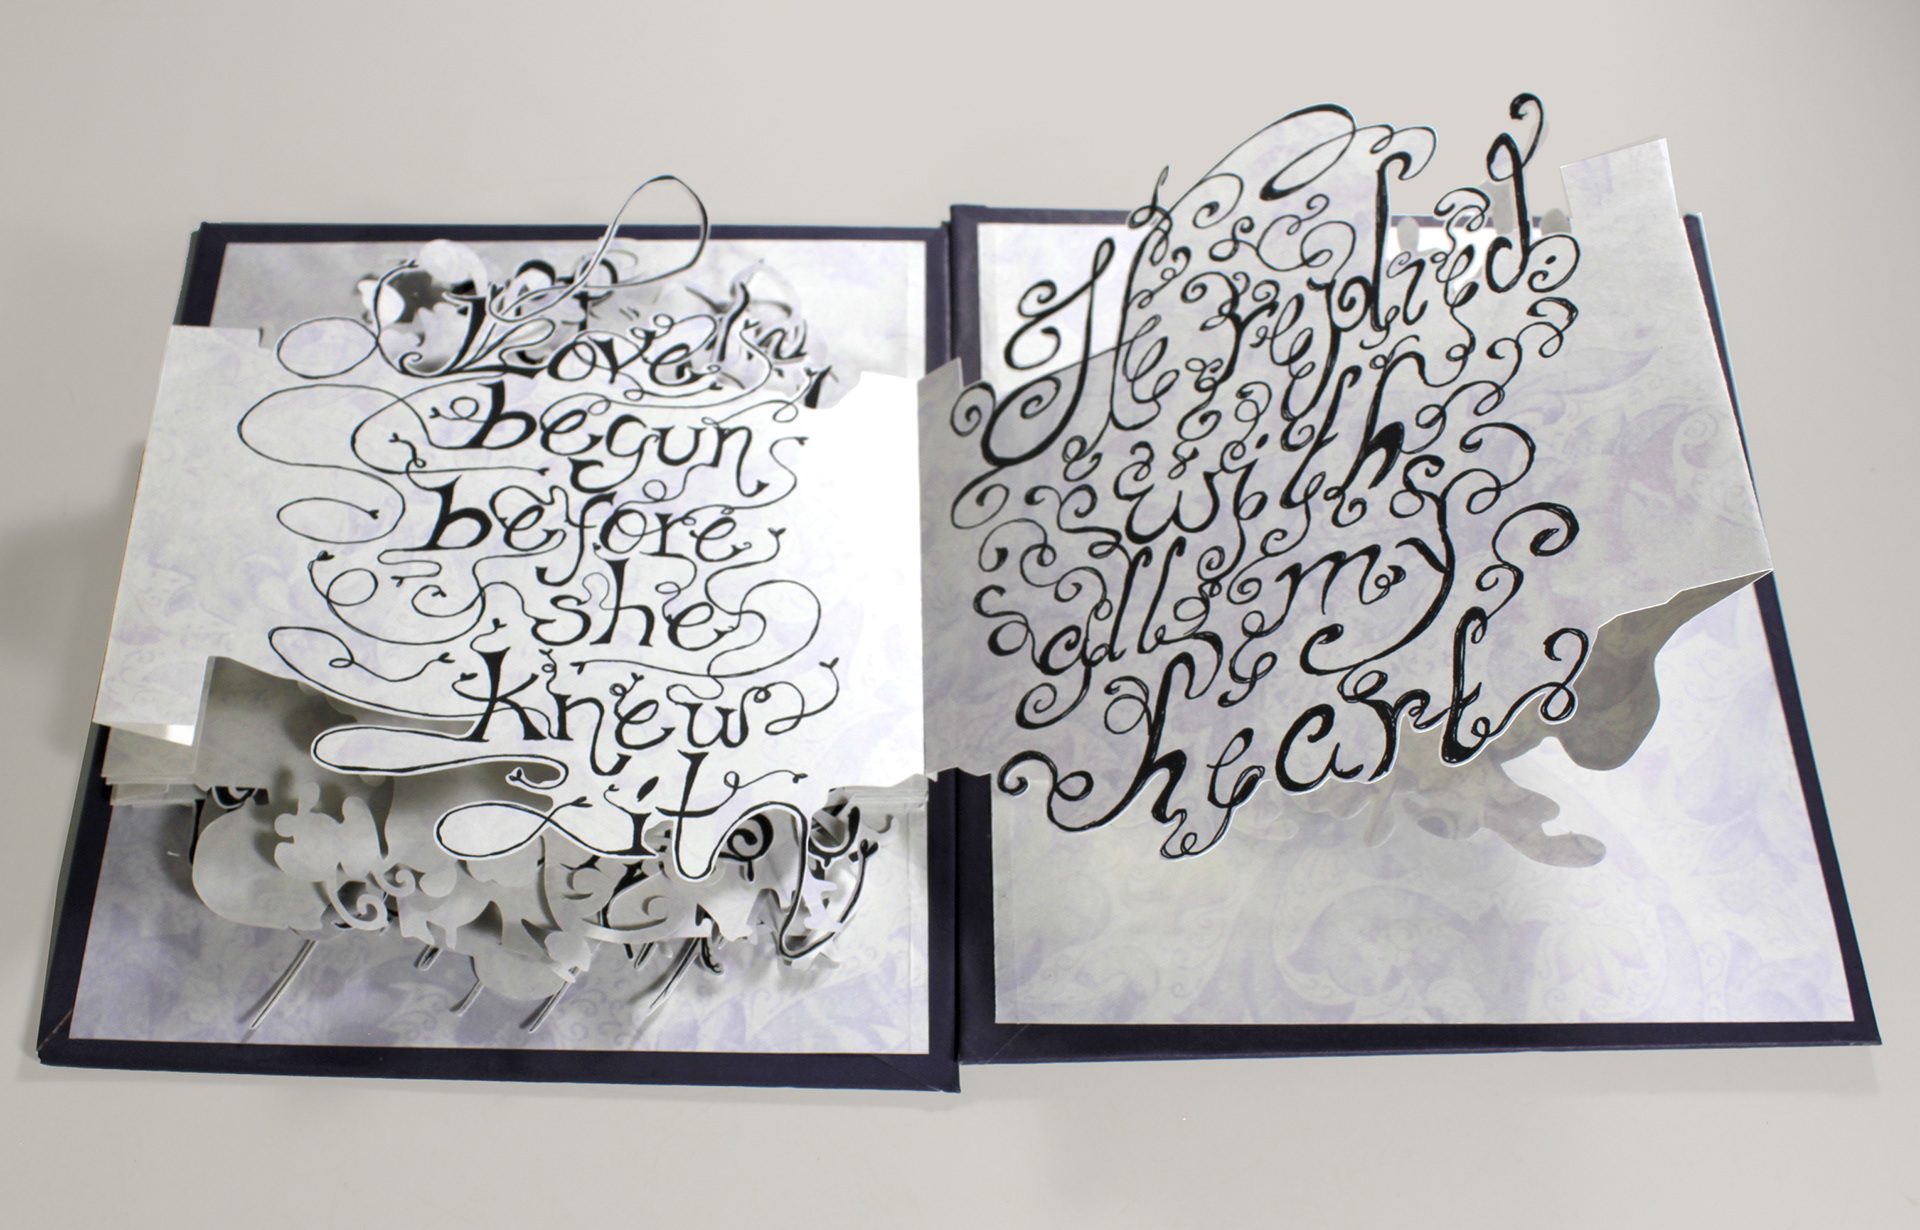 Love
begun
before
she
knew
it
He replied
with
all my
heart